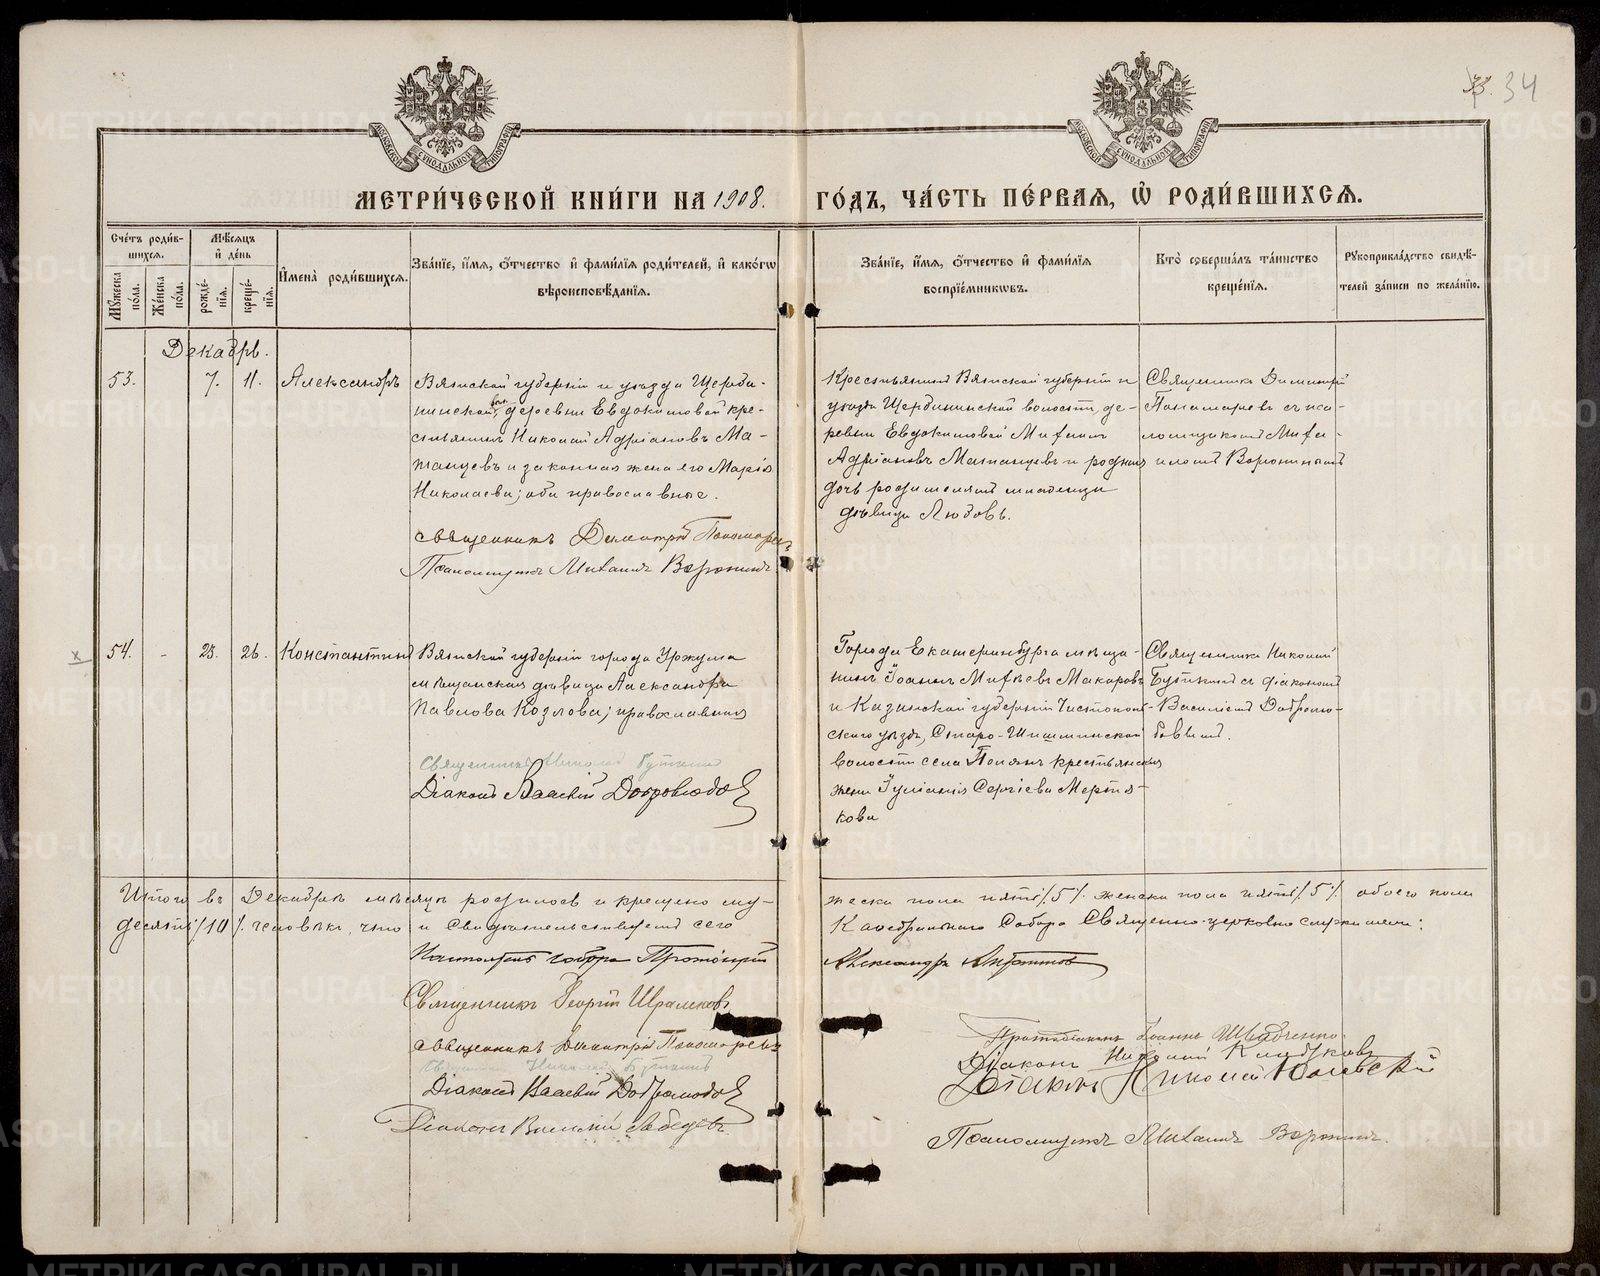 33. 34
МОСКОВСКОЙ СѴНОДАЛЬНОЙ ТИПОГРАФІИ
МОСКОВСКОЙ СѴНОДАЛЬНОЙ ТИПОГРАФІИ
МЕТРИ́ЧЕСКОЙ КНИ́ГИ НА 1908. ГО́ДЪ, ЧА́СТЬ ПЕ́РВАЯ, Ѡ РОДИ́ВШИХСѦ.
Сче́тъ роди́в-
шихсѧ.
Мꙋ́жеска по́ла.
Же́нска по́ла.
Мѣ́сѧцъ
и҆ де́нь
рожде́-
нїѧ.
креще́-
нїѧ.
И҆мена̀ роди́вшихсѧ.
Зва́нїе, и҆́мѧ, ѻ҆́тчество и҆ фами́лїѧ роди́телей, и҆ како́гѡ
вѣроисповѣ́данїѧ.
Зва́нїе, и҆́мѧ, ѻ҆́тчество и҆ фами́лїѧ
воспрїе́мникѡвъ.
Кто̀ соверша́лъ та́инство
креще́нїѧ.
Рꙋкоприкла́дство свидѣ́-
телей за́писи по жела́нїю.
Декабрь.
53. 7. 11. Александръ
Вятской губерніи и уѣзда Щерби-
нинской вол. деревни Евдокимовой кре-
стьянинъ Николай Адріановъ Ма-
танцевъ и законная жена его Марія
Николаева; оба православные.
Священникъ Димитрій Пономаревъ
Псаломщикъ Михаилъ Воронинъ
Крестьянинъ Вятской губерніи и
уѣзда Щербининской волости, де-
ревни Евдокимовой
Адріановъ Матанцевъ и родная
дочь родителей младенца
дѣвица Любовь.
Священникъ Димитрій
Пономаревъ съ пса-
ломщикомъ Миха-
иломъ Воронинымъ
х 54. - 25. 26. Константинъ
Вятской губерніи города Уржума
мѣщанская дѣвица Александра
Павлова Козлова; православная
Священникъ Николай Буткинъ
Діаконъ Василій Добролюбовъ
Города Екатеринбурга мѣща-
нинъ Іоаннъ Макаровъ
и Казанской губерніи Чистополь-
скаго уѣзда, Старо-Шешминской
волости села крестьянская
жена Іуліанія Сергіева Мертя-
кова
Священникъ Николай
Буткинъ съ діакономъ
Василіемъ Добролю-
бовымъ.
Итого въ Декабрѣ мѣсяцѣ родилось и крещено му-
жеска пола пять /5/. женска пола пять /5/. обоего пола
десять /10/. человѣкъ, что и свидѣтельствуемъ сего
Каѳедральнаго Собора Священно-церковно служители:
Настоятель собора Протоіерей
Священникъ Георгій
Священникъ Димитрій Пономаревъ
Священникъ Николай Буткинъ
Діаконъ Василій Добролюбовъ
Діаконъ Василій Лебедевъ
Александръ
Протодіаконъ Іоаннъ
Діаконъ Николай
Діаконъ Николай
Псаломщикъ Михаилъ Воронинъ.
METRIKI.GASO-URAL.RU